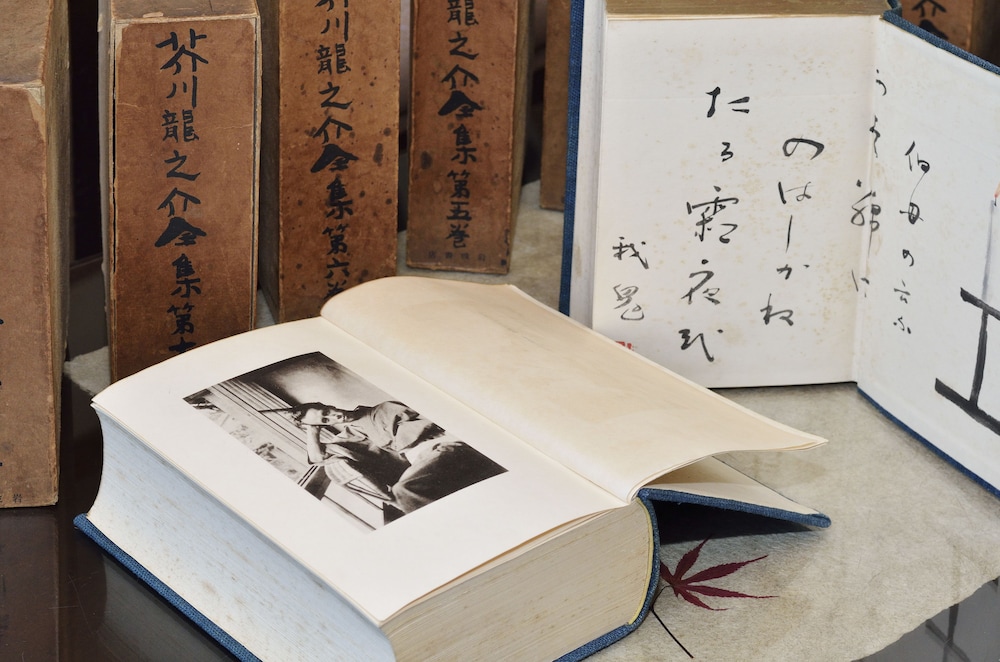 芥川龍之介全集第
龍之介全集第六巻
龍之介全集第五巻
伯母の云ふ
うす綿は
のはしかね
たる霜夜哉
我鬼